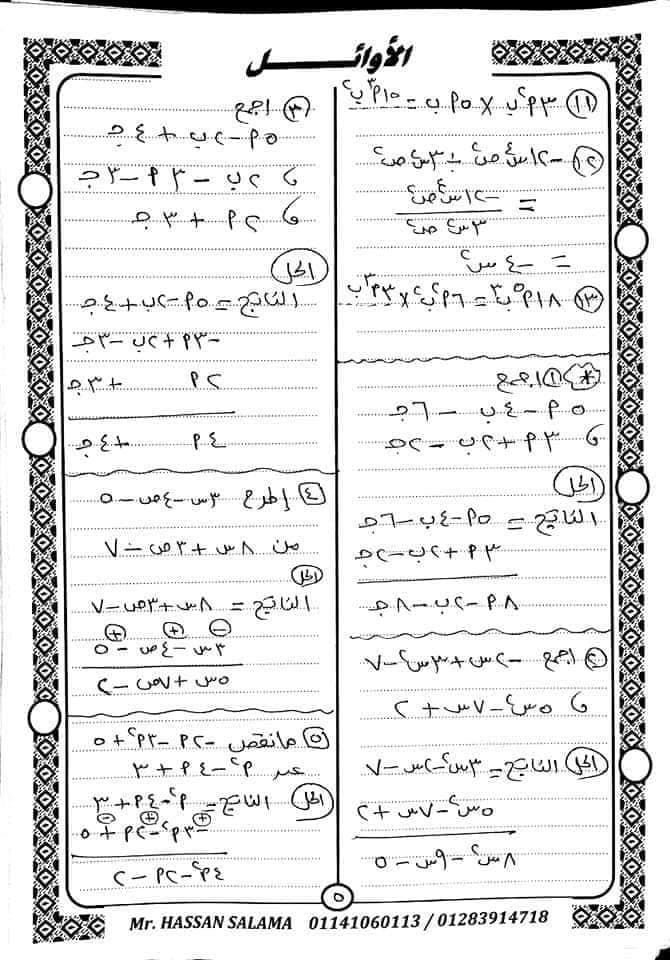 الأوائــــــل
(١١) ٣أ²ب × ٥أب = ١٥أ³ب²
(١٢) -١٢س⁴ص² ÷ ٣س²ص²
= -١٢س⁴ص²
٣س²ص²
= -٤س²
(١٣) ١٨أ⁵ب³ = ٦أ²ب² × ٣أ³ب
* (١) اجمع
٥أ - ٤ب - ٦جـ
، ٣أ + ٢ب - ٢جـ
الحل
الناتج = ٥أ - ٤ب - ٦جـ
٣أ + ٢ب - ٢جـ
٨أ - ٢ب - ٨جـ
(٢) اجمع -٢س + ٣س² - ٧
، ٥س² - ٧س + ٢
الحل الناتج = ٣س² - ٢س - ٧
٥س² - ٧س + ٢
٨س² - ٩س - ٥
(٣) اجمع
٥أ - ٢ب + ٤جـ
، ٢ب - ٣أ - ٣جـ
، ٢أ + ٣جـ
الحل
الناتج = ٥أ - ٢ب + ٤جـ
-٣أ + ٢ب - ٣جـ
٢أ + ٣جـ
٤أ + ٤جـ
(٤) إطرح ٣س - ٤ص - ٥
من ٨س + ٣ص - ٧
الحل
الناتج = ٨س + ٣ص - ٧
- + +
٣س - ٤ص - ٥
٥س + ٧ص - ٢
(٥) ما نقص -٢أ - ٣أ² + ٥
عن أ² - ٤أ + ٣
الحل الناتج = أ² - ٤أ + ٣
+ + -
-٣أ² - ٢أ + ٥
٤أ² - ٢أ - ٢
٥
Mr. HASSAN SALAMA 01141060113 / 01283914718